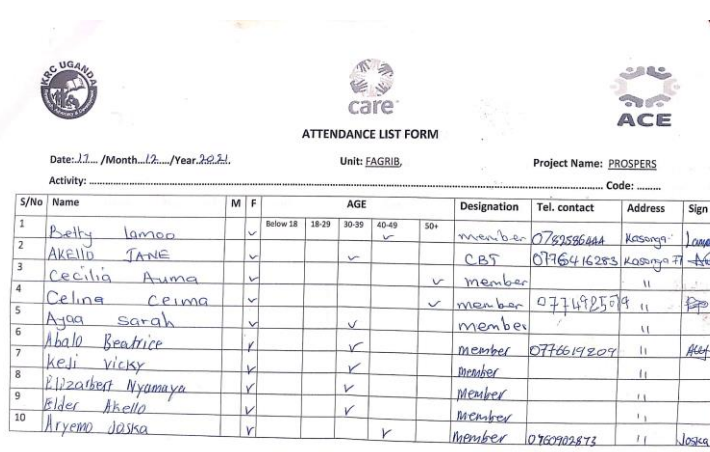 KRC UGANDA
care
ACE
ATTENDANCE LIST FORM
Date: 17 /Month 12 /Year 2021. Unit: FAGRIB, Project Name: PROSPERS
Activity: Code:
S/No Name M F AGE Designation Tel. contact Address Sign
Below 18 18-29 30-39 40-49 50+
1 Betty lamoo ✓ ✓ member Kasonga
2 AKELLO JANE ✓ ✓ CBT 0776416283 Kasonga
3 Cecilia Auma ✓ ✓ member "
4 Celina Ceima ✓ ✓ member "
5 Ayaa Sarah ✓ ✓ member "
6 Abalo Beatrice ✓ ✓ member "
7 Keji Vicky ✓ ✓ member "
8 Elizarbert Nyamaya ✓ ✓ member "
9 Elder Akello ✓ ✓ member "
10 Aryemo Joska ✓ ✓ member 0760902873 " Joska